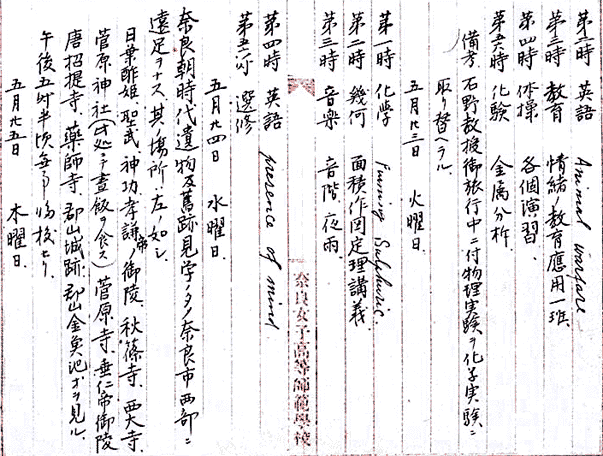 第二時 英語 Animal warfare
第三時 教育 情緒ノ教育應用一班
第四時 体操 各個演習、
第五六時 化験 金属分析
備考、石野教授御旅行中ニ付物理実験ヲ化学実験ニ
取り替ヘラル、
五月廿三日 火曜日、
第一時 化學 fuming Sulphuric.
第二時 幾何 面積作図定理講義
第三時 音楽 音階、夜雨
第四時 英語 presence of mind
第五時 選修
奈良女子高等師範學校
五月廿四日 水曜日、
奈良朝時代遺物及舊跡見学ノタメ奈良市西部ニ
遠足ヲナス、其ノ場所ハ左ノ如シ
日葉酢姫、聖武、神功、孝謙帝ノ御陵、秋篠寺、西大寺、
菅原神社(此処ニテ晝飯ヲ食ス)菅原寺、垂仁帝御陵
唐招提寺、薬師寺、郡山城跡、郡山金魚池オヲ見ル
午後五時半頃無事帰校セり、
五月廿五日 木曜日、